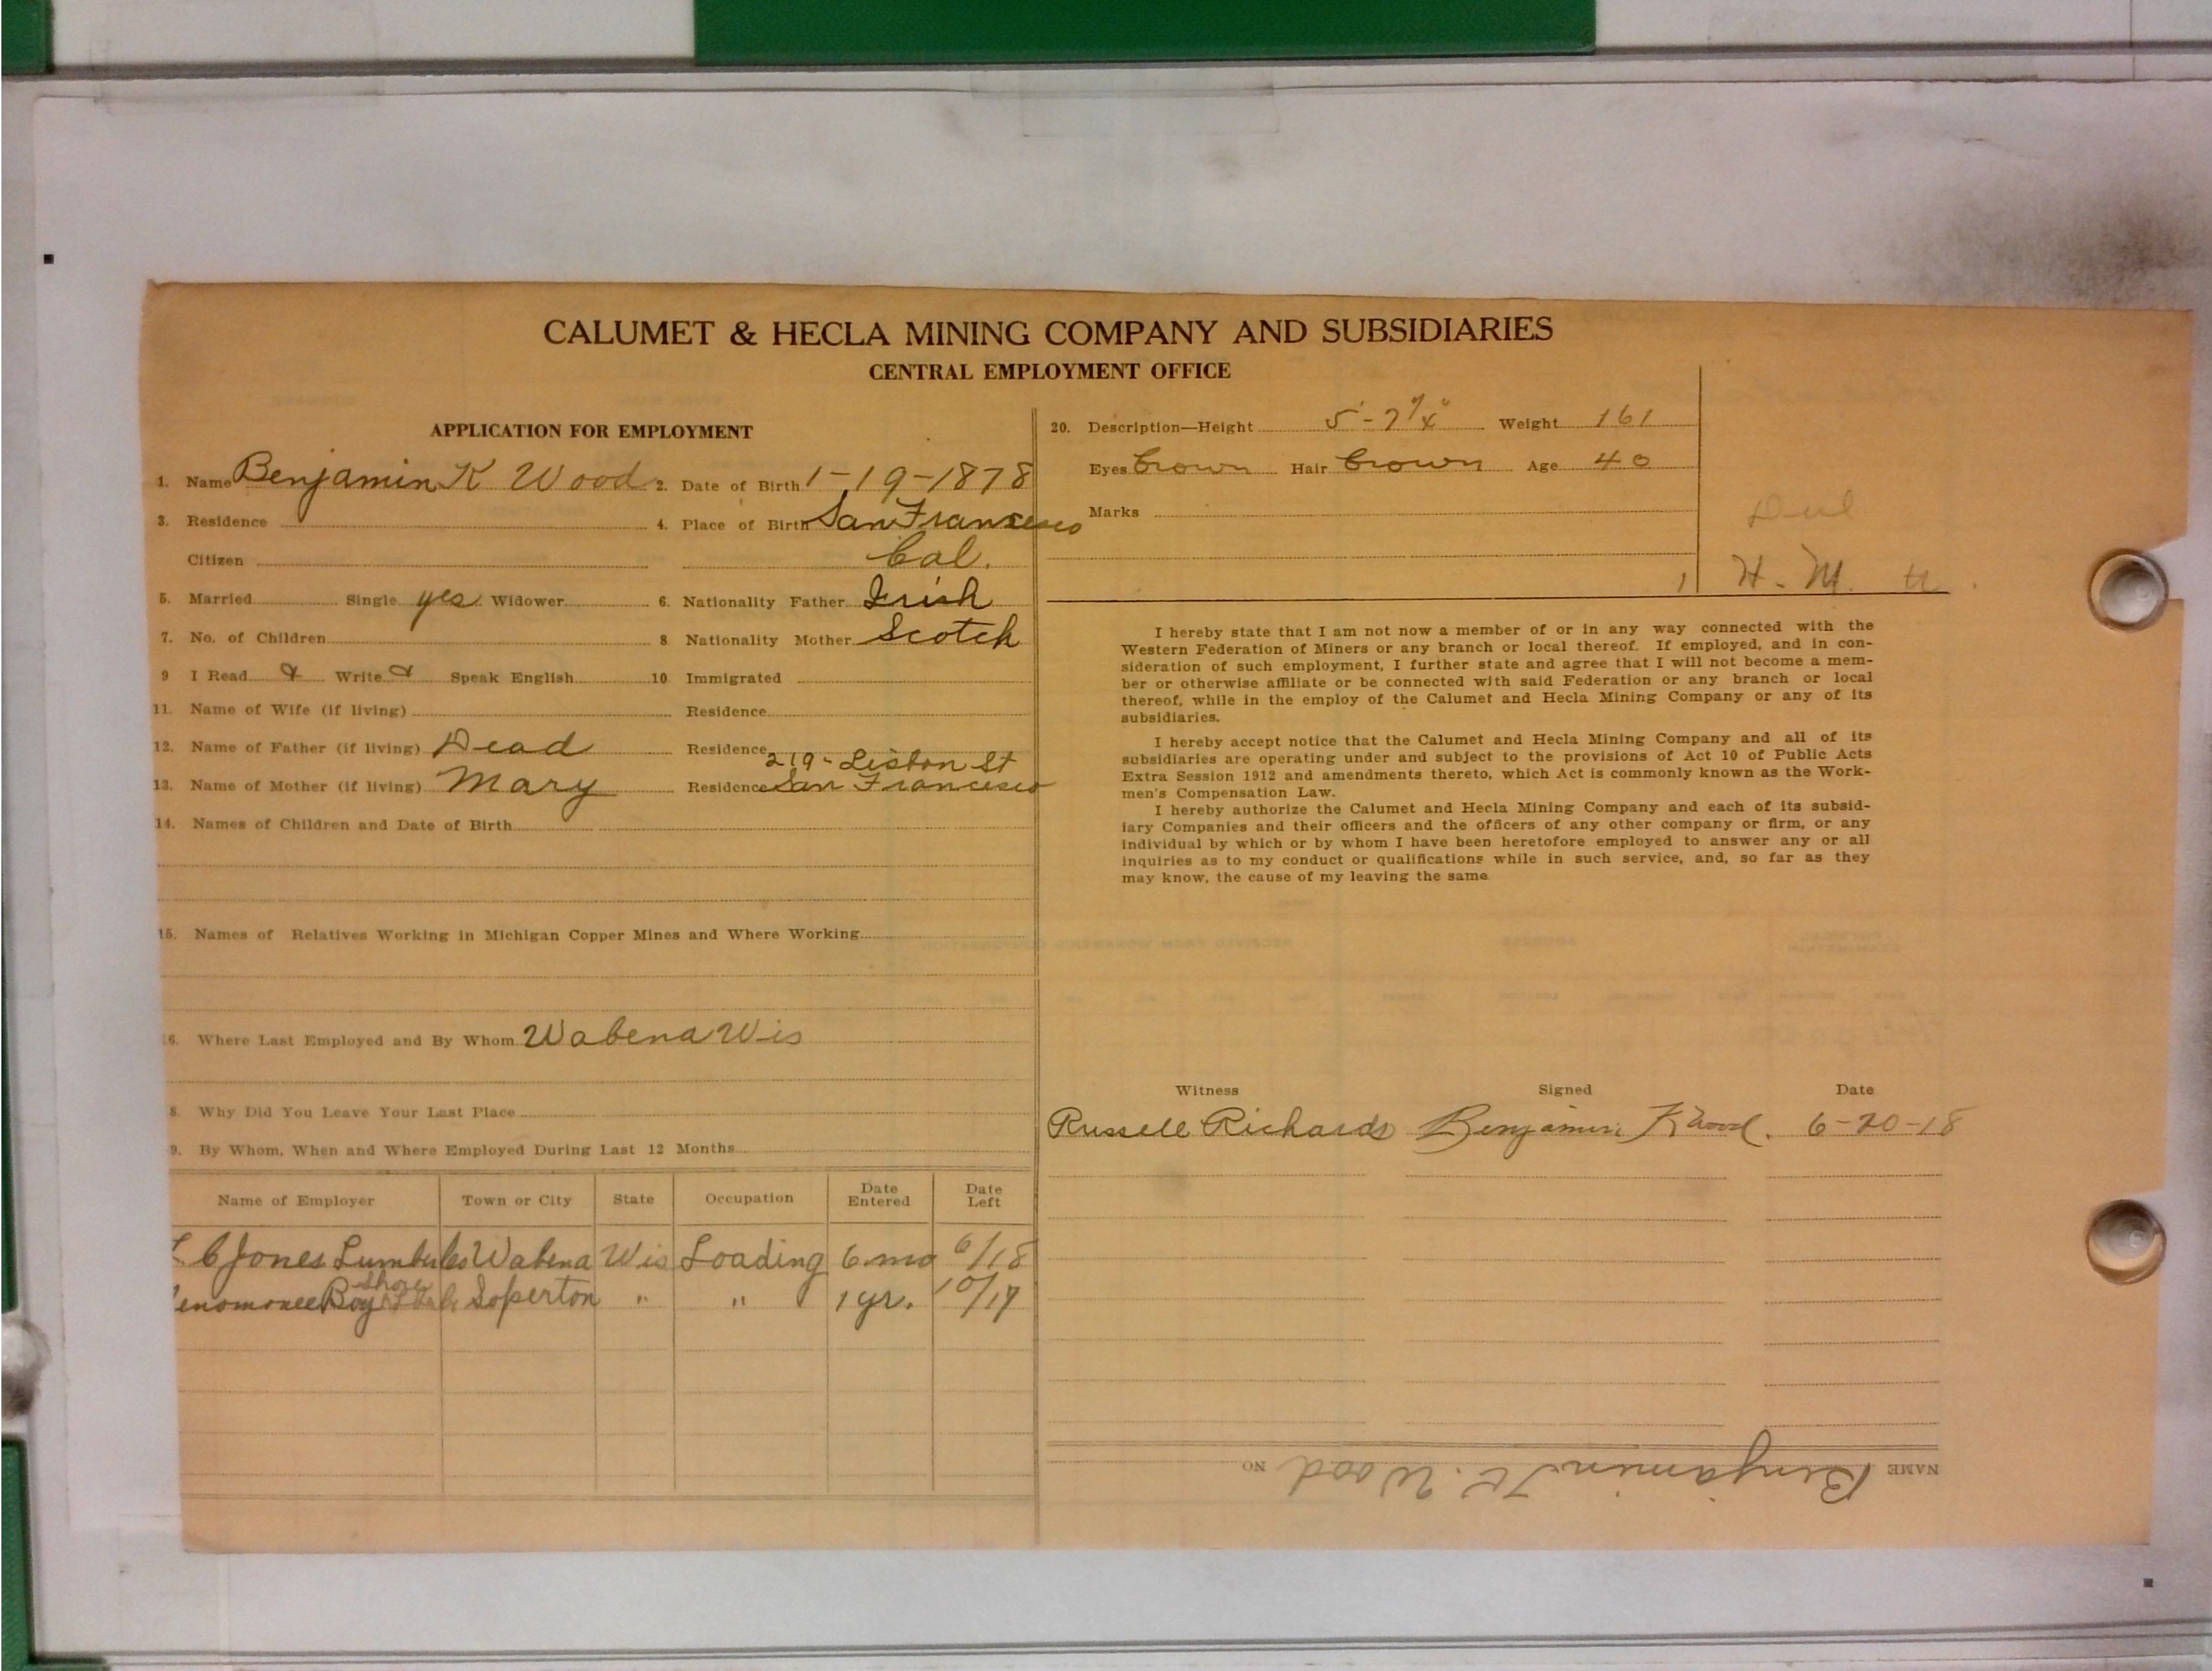 CALUMET & HECLA MINING COMPANY AND SUBSIDIARIES
CENTRAL EMPLOYMENT OFFICE
APPLICATION FOR EMPLOYMENT
1. Name Benjamin K Wood 2. Date of Birth 1-19-1878
3. Residence 4. Place of Birth San Francesco
Citizen Cal.
5. Married Single yes Widower 6. Nationality Father Irish
7. No. of Children 8 Nationality Mother Scotch
9 I Read Write Speak English 10 Immigrated
11. Name of Wife (if living) Residence
12. Name of Father (if living) Dead Residence
219 - Lisbon St
13. Name of Mother (if living) Mary Residence San Francesco
14. Names of Children and Date of Birth
15. Names of Relatives Working in Michigan Copper Mines and Where Working
6. Where Last Employed and By Whom Wabena Wis
8. Why Did You Leave Your Last Place
9. By Whom, When and Where Employed During Last 12 Months
Name of Employer Town or City State Occupation Date Entered Date Left
C Jones Lumber Co Wabena Wis Loading 6 mo 6/18
Shore
enomonee Bay Soperton " " 1 yr. 10/17
20. Description—Height 5'-7 1/4" Weight 161
Eyes brown Hair brown Age 40
Marks
H. M.
I hereby state that I am not now a member of or in any way connected with the
Western Federation of Miners or any branch or local thereof. If employed, and in con-
sideration of such employment, I further state and agree that I will not become a mem-
ber or otherwise affiliate or be connected with said Federation or any branch or local
thereof, while in the employ of the Calumet and Hecla Mining Company or any of its
subsidiaries.
I hereby accept notice that the Calumet and Hecla Mining Company and all of its
subsidiaries are operating under and subject to the provisions of Act 10 of Public Acts
Extra Session 1912 and amendments thereto, which Act is commonly known as the Work-
men's Compensation Law.
I hereby authorize the Calumet and Hecla Mining Company and each of its subsid-
iary Companies and their officers and the officers of any other company or firm, or any
individual by which or by whom I have been heretofore employed to answer any or all
inquiries as to my conduct or qualifications while in such service, and, so far as they
may know, the cause of my leaving the same
Witness Signed Date
Russell Richards Benjamin K Wood. 6-20-18
NAME Benjamin K. Wood NO